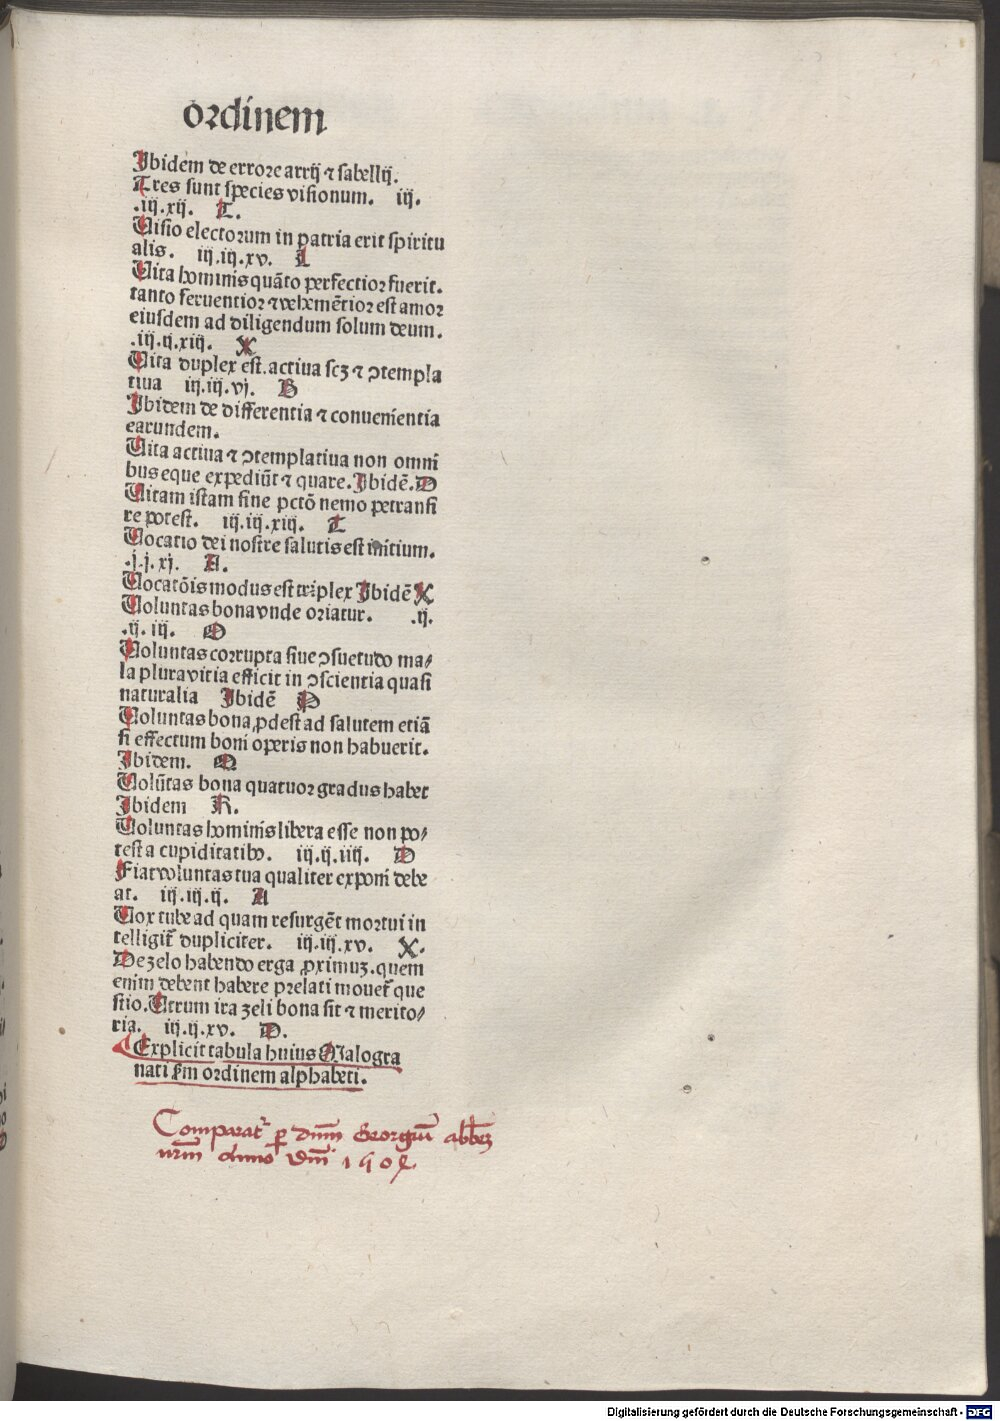 ordinem
Ibidem de errore arrij ⁊ sabellij.
Tres sunt species visionum. iij.
.iij.xij. T.
Uisio electorum in patria erit spiritu
alis. iij.iij.xv. L
Uita hominis quāto perfectior fuerit.
tanto feruentior ⁊ vehemētior est amor
eiusdem ad diligendum solum deum.
.iij.ij.xiij. X
Uita duplex est. actiua scꝫ ⁊ ↄtempla
tiua iij.iij.vj. B
Ibidem de differentia ⁊ conuenientia
earundem.
Uita actiua ⁊ ↄtemplatiua non omni
bus eque expediūt ⁊ quare. Ibidē. D
Uitam istam sine pctō nemo petransi
re potest. iij.iij.xiij. T
Uocatio dei nostre salutis est initium.
.j.j.xj. A.
Uocatōis modus est triplex Ibidē X
Uoluntas bona vnde oriatur. .ij.
.ij.iij. O
Uoluntas corrupta siue ↄsuetudo ma/
la plura vitia efficit in ↄscientia quasi
naturalia Ibidē P
Uoluntas bona ꝓdest ad salutem etiā
si effectum boni operis non habuerit.
Ibidem. Q
Uolūtas bona quatuor gradus habet
Ibidem R.
Uoluntas hominis libera esse non po/
test a cupiditatibꝰ. iij.ij.iiij. D
Fiat voluntas tua qualiter exponi debe
at. iij.iij.ij. A
Uox tube ad quam resurgēt mortui in
telligit̄ dupliciter. iij.iij.xv. X.
De zelo habendo erga ꝓximuꝫ. quem
enim debent habere prelati mouet̄ que
stio. Utrum ira zeli bona sit ⁊ merito/
ria. iij.ij.xv. D.
Explicit tabula huius Malogra
nati ẜm ordinem alphabeti.
Comparat᷒ ꝑ dn̄m Georgiū abbēꝫ
nr̄m Anno Dn̄i
Digitalisierung gefördert durch die Deutsche Forschungsgemeinschaft - DFG